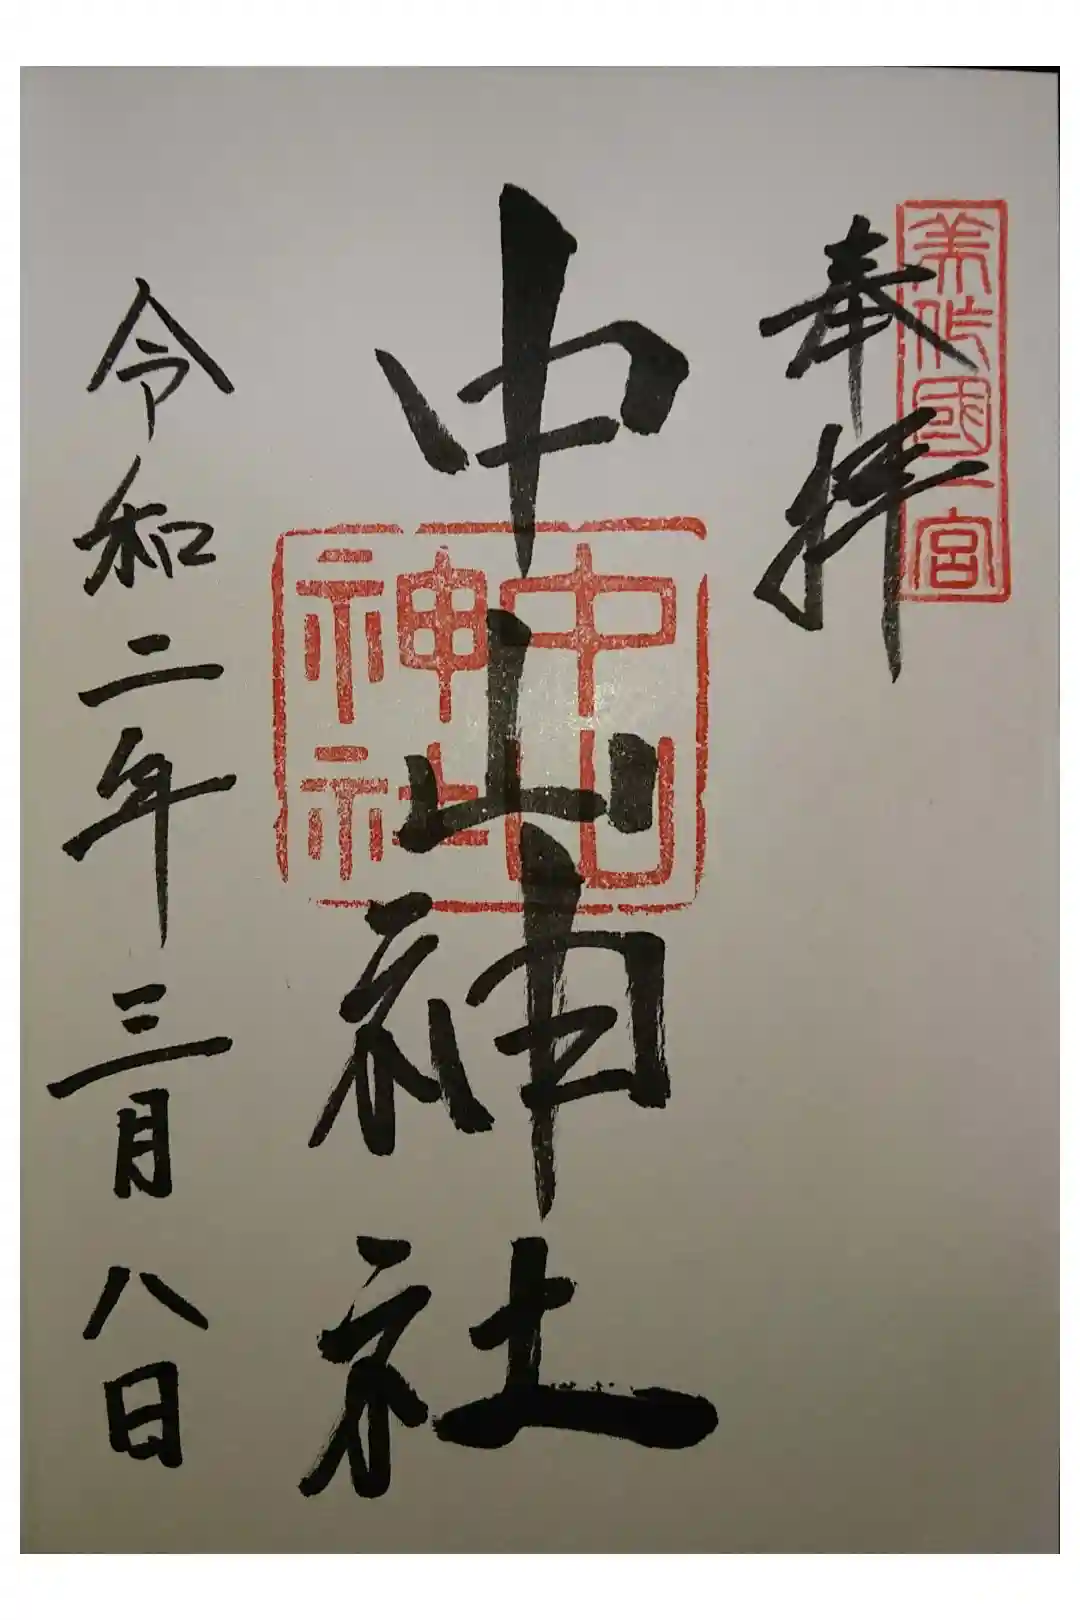 美作國一宮
奉拝
中山神社
中山
神社
令和二年三月八日